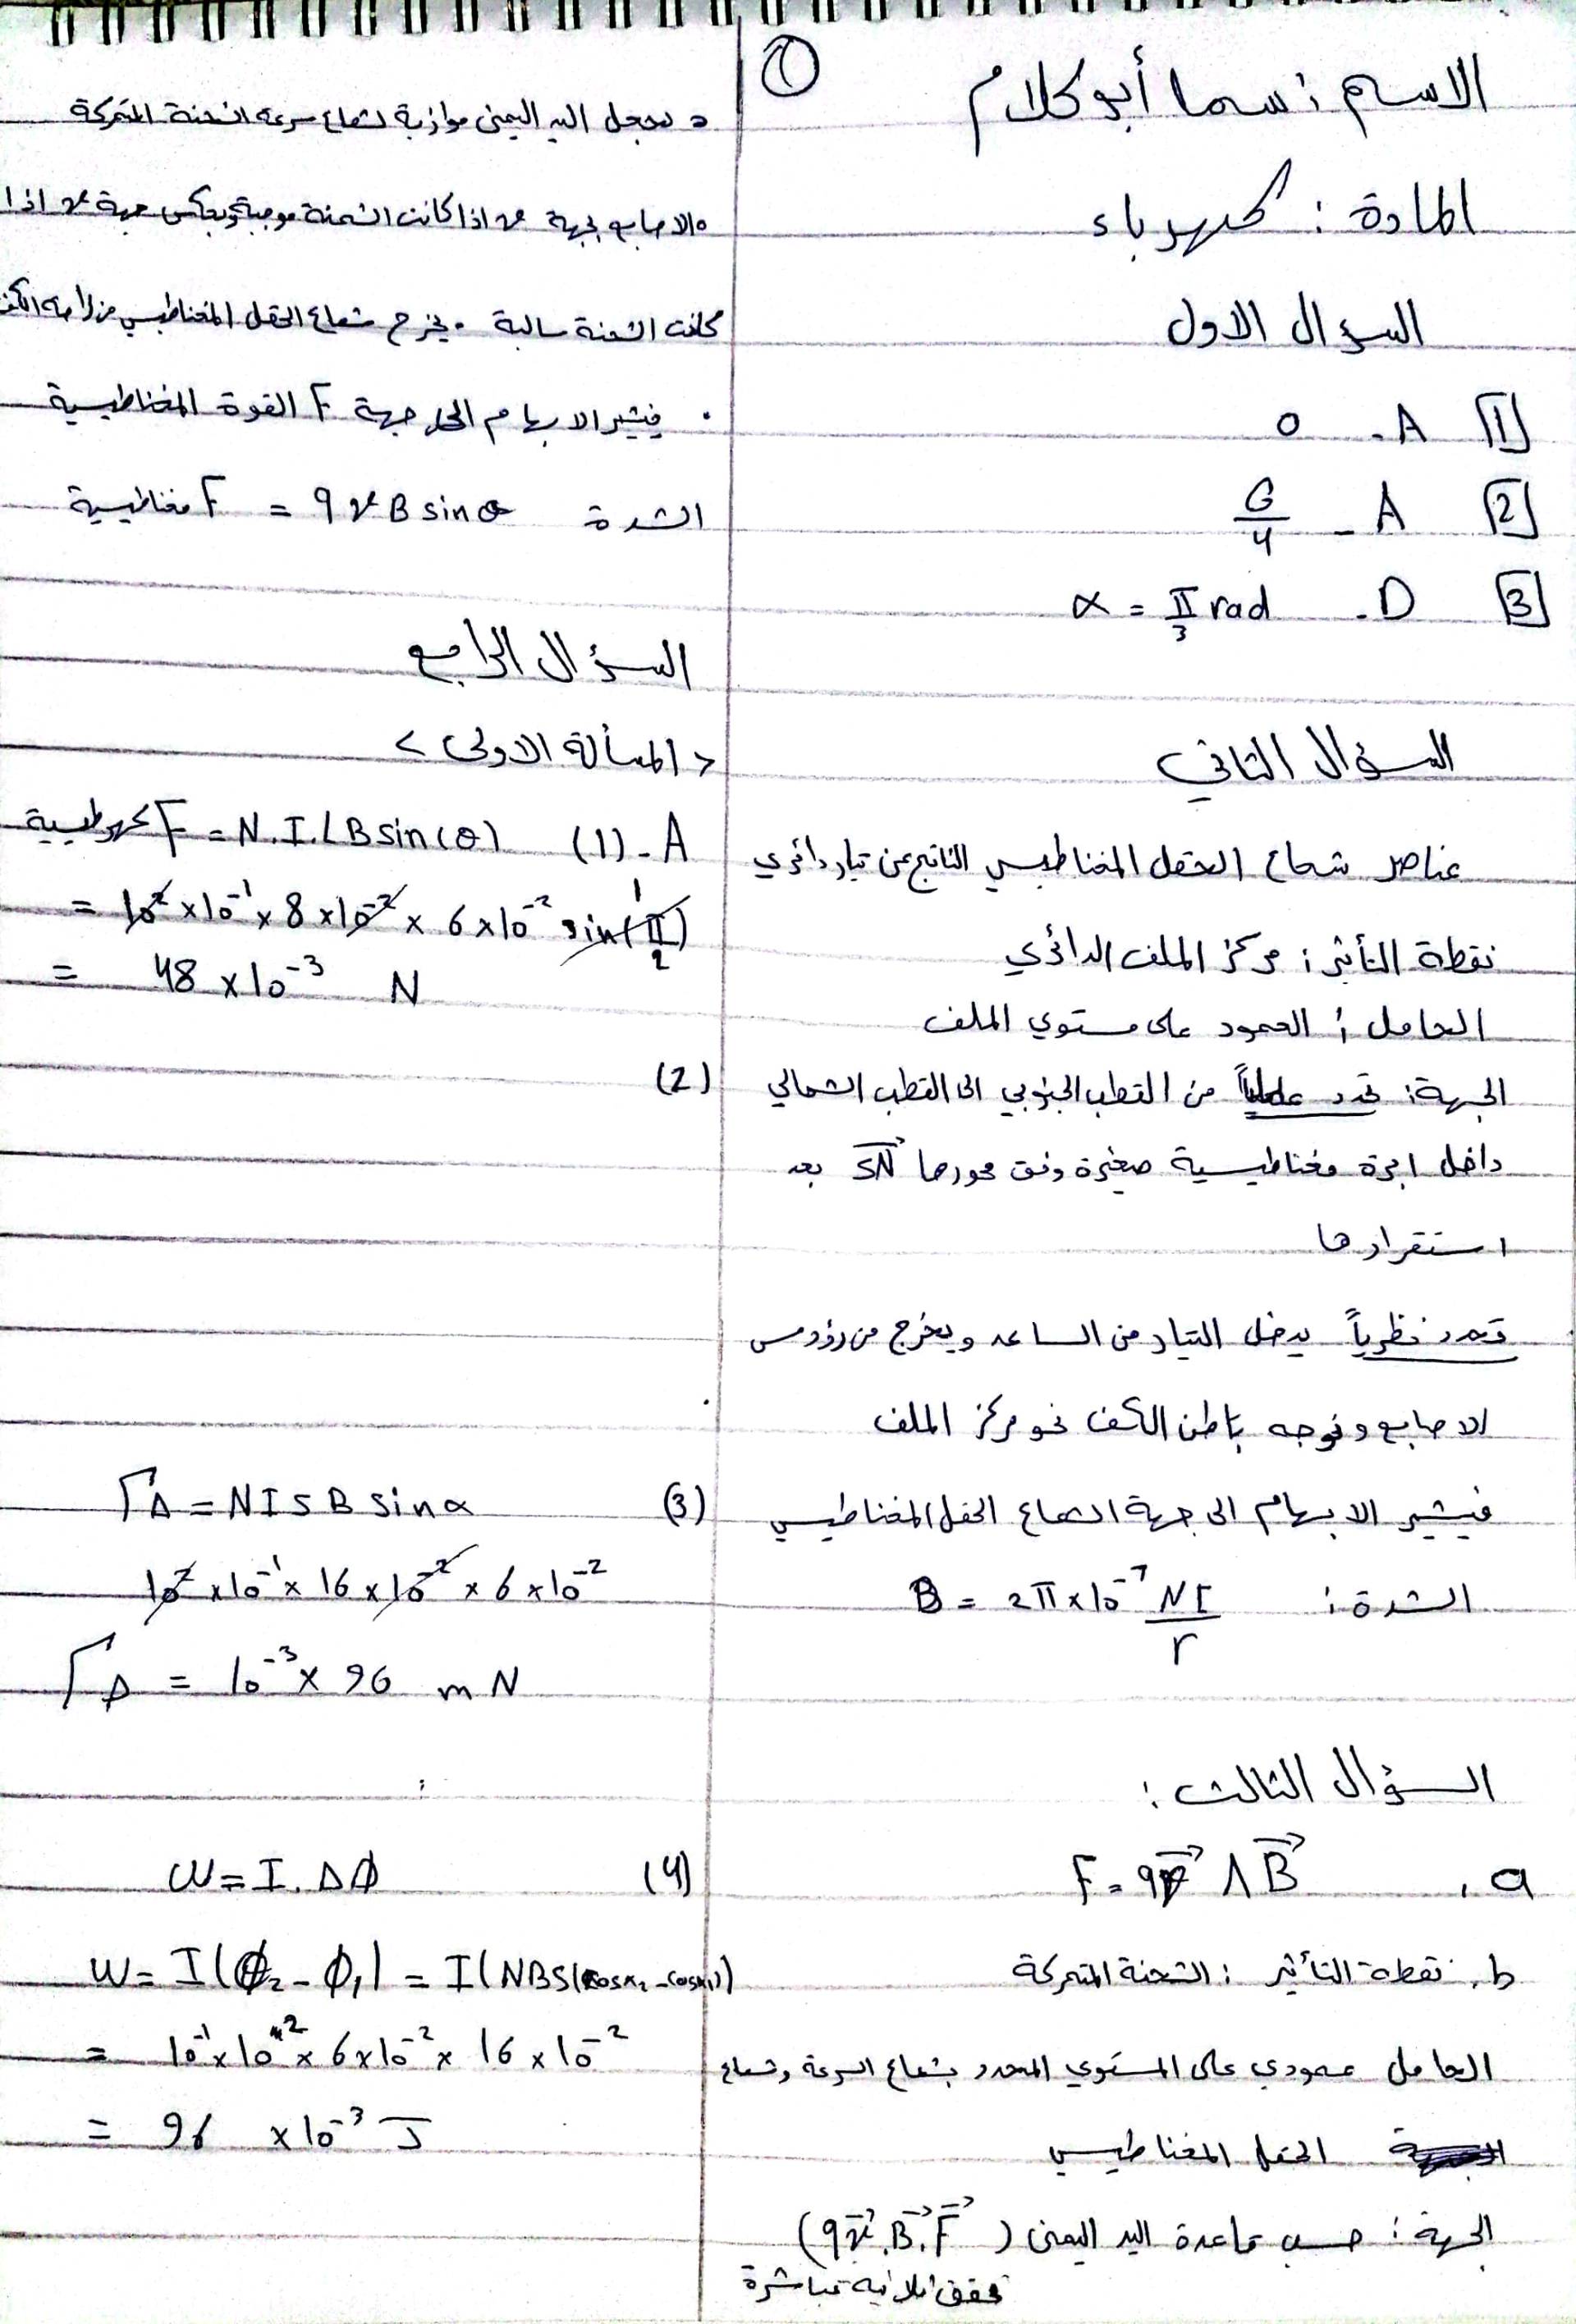 ①
الاسم : سما أبو كلام
المادة : كهرباء
السؤال الاول
1 A - 0
2 A - G/4
3 D - α = π/3 rad
السؤال الثاني
عناصر شعاع الحقل المغناطيسي الناتج عن تيار دائري
نقطة التأثير : مركز الملف الدائري
الحامل : العمود على مستوي الملف
الجهة : تحدد عملياً من القطب الجنوبي الى القطب الشمالي
داخل ابرة مغناطيسية صغيرة وفق محورها SN بعد
استقرارها
تحدد نظرياً يدخل التيار من الساعد ويخرج من رؤوس
الاصابع ونوجه باطن الكف نحو مركز الملف
فيشير الابهام الى جهة الشعاع الحقل المغناطيسي
الشدة : B = 2π×10⁻⁷ NI/r
السؤال الثالث :
a. F = qv⃗ Λ B⃗
b. نقطة التأثير : الشحنة المتحركة
الحامل عمودي على المستوي المحدد بشعاع السرعة وشعاع
الحقل المغناطيسي
الجهة : حسب قاعدة اليد اليمنى (qv⃗, B⃗, F⃗)
تحقق ثلاثية مباشرة
نجعل اليد اليمنى موازية لشعاع سرعة الشحنة المتحركة
والاصابع بجهة v اذا كانت الشحنة موجبة وبعكس جهة v اذا
كانت الشحنة سالبة . يخرج شعاع الحقل المغناطيسي من راحة الكف
. فيشير الابهام الى جهة F القوة المغناطيسية
الشدة F مغناطيسية = qvB sinθ
السؤال الرابع
< المسألة الاولى >
A - (1) F كهرطيسية = N.I.LB sin(θ)
= 10² × 10⁻¹ × 8 × 10⁻² × 6 × 10⁻² sin(π/2) 1
= 48 × 10⁻³ N
(2)
(3) ΓΔ = NISB sinα
10² × 10⁻¹ × 16 × 10⁻² × 6 × 10⁻²
ΓΔ = 10⁻³ × 96 mN
(4) W = I.ΔΦ
W = I(Φ₂ - Φ₁) = I(NBS(cosα₂ - cosα₁))
= 10⁻¹ × 10² × 6 × 10⁻² × 16 × 10⁻²
= 96 × 10⁻³ J